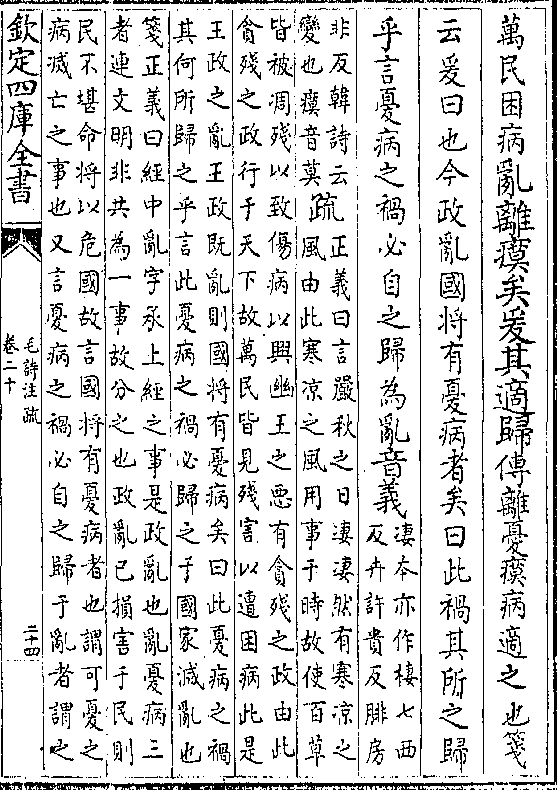 萬民困病亂離瘼矣爰其適歸傳離憂瘼病適之也箋
云爰曰也今政亂國將有憂病者矣曰此禍其所之歸
乎言憂病之禍必自之歸為亂音義淒本亦作棲七西
反卉許貴反腓房
非反韓詩云
變也瘼音莫疏正義曰言嚴秋之日淒淒然有寒凉之
風由此寒凉之風用事于時故使百草
皆被凋殘以致傷病以興幽王之惡有貪殘之政由此
貪殘之政行于天下故萬民皆見殘害以遭困病此是
王政之亂王政既亂則國將有憂病矣曰此憂病之禍
其何所歸之乎言此憂病之禍必歸之于國家滅亂也
箋正義曰經中亂字承上經之事是政亂也亂憂病三
者連文明非共為一事故分之也政亂已損害于民則
民不堪命將以危國故言國將有憂病者也謂可憂之
病滅亡之事也又言憂病之禍必自之歸于亂者謂之
欽定四庫全書
毛詩注疏
卷二十
二十四